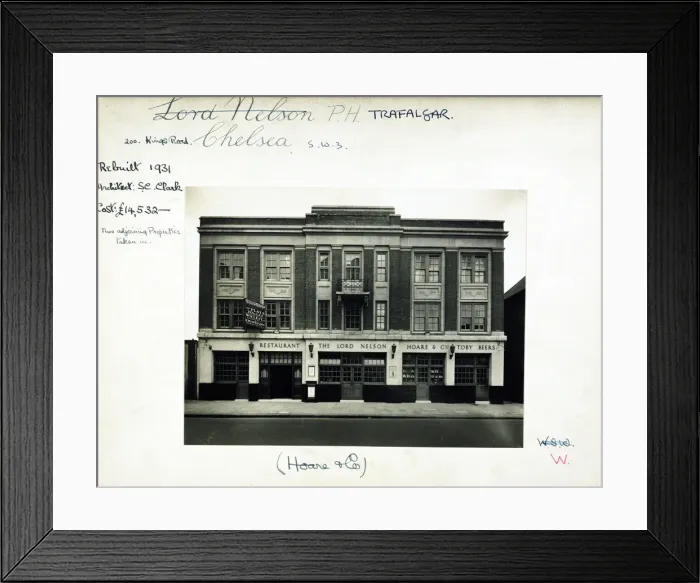 Lord Nelson P.H. TRAFALGAR.
200. Kings Road. Chelsea. S.W.3.
Rebuilt 1931
Architect: S.C. Clark
Cost: £14,532—
Two adjoining Properties
taken in.
RESTAURANT THE LORD NELSON HOARE & CO TOBY BEERS
(Hoare & Co)
W.